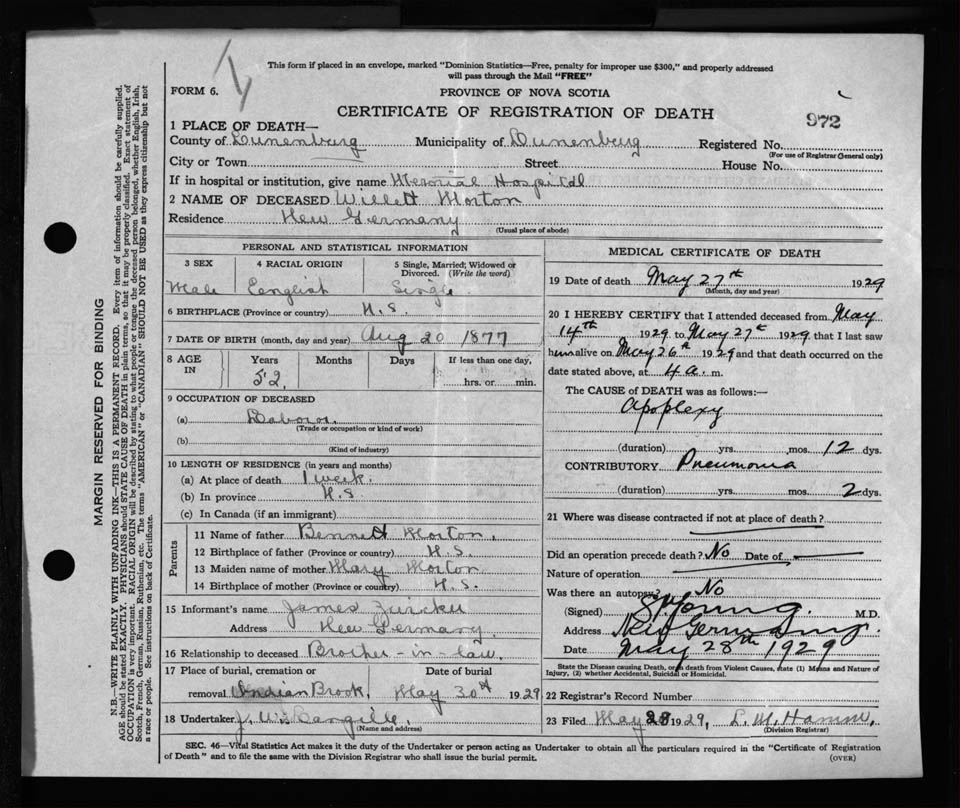 This form if placed in an envelope, marked "Dominion Statistics—Free, penalty for improper use $300," and properly addressed
will pass through the Mail "FREE"
FORM 6.
PROVINCE OF NOVA SCOTIA
CERTIFICATE OF REGISTRATION OF DEATH
972
1 PLACE OF DEATH—
County of Lunenburg Municipality of Lunenburg Registered No.
(For use of Registrar General only)
City or Town Street House No.
If in hospital or institution, give name Memorial Hospital
2 NAME OF DECEASED Willett Morton
Residence New Germany
(Usual place of abode)
PERSONAL AND STATISTICAL INFORMATION
3 SEX 4 RACIAL ORIGIN 5 Single, Married, Widowed or
Divorced. (Write the word)
Male English Single
6 BIRTHPLACE (Province or country) N.S.
7 DATE OF BIRTH (month, day and year) Aug 20 1877
8 AGE IN Years Months Days If less than one day,
52 hrs. or min.
9 OCCUPATION OF DECEASED
(a) Labourer
(Trade or occupation or kind of work)
(b)
(Kind of industry)
10 LENGTH OF RESIDENCE (in years and months)
(a) At place of death 1 week.
(b) In province N.S.
(c) In Canada (if an immigrant)
Parents
11 Name of father Bennett Morton.
12 Birthplace of father (Province or country) N.S.
13 Maiden name of mother Mary Morton
14 Birthplace of mother (Province or country) N.S.
15 Informant's name James Zwicker
Address New Germany.
16 Relationship to deceased Brother-in-law.
17 Place of burial, cremation or Date of burial
removal Indian Brook. May 30th 1929
18 Undertaker J. W.
(Name and address)
MEDICAL CERTIFICATE OF DEATH
19 Date of death May 27th 1929
(Month, day and year)
20 I HEREBY CERTIFY that I attended deceased from May
14th 1929 to May 27th 1929 that I last saw
him alive on May 26th 1929 and that death occurred on the
date stated above, at 4 a. m.
The CAUSE of DEATH was as follows:—
Apoplexy
(duration) yrs. mos. 12 dys.
CONTRIBUTORY Pneumonia
(duration) yrs. mos. 2 dys.
21 Where was disease contracted if not at place of death?
Did an operation precede death? No Date of
Nature of operation
Was there an autopsy? No
(Signed) Young. M.D.
Address New Germany
Date May 28th 1929
State the Disease causing Death, or in death from Violent Causes, state (1) Means and Nature of
Injury, (2) whether Accidental, Suicidal or Homicidal.
22 Registrar's Record Number
23 Filed May 28 1929, L. M. Hamm.
(Division Registrar)
SEC. 46—Vital Statistics Act makes it the duty of the Undertaker or person acting as Undertaker to obtain all the particulars required in the "Certificate of Registration
of Death" and to file the same with the Division Registrar who shall issue the burial permit.
(OVER)
MARGIN RESERVED FOR BINDING
N.B.—WRITE PLAINLY WITH UNFADING INK—THIS IS A PERMANENT RECORD. Every item of information should be carefully supplied.
AGE should be stated EXACTLY. PHYSICIANS should STATE CAUSE OF DEATH in plain terms, so that it may be properly classified. Exact statement of
OCCUPATION is very important. RACIAL ORIGIN will be described by stating to what people or tongue the deceased person belonged, whether English, Irish,
Scotch, French, German, Russian, Ruthenian, etc. The terms "AMERICAN" or "CANADIAN" SHOULD NOT BE USED as they express citizenship but not
a race or people. See instructions on back of Certificate.